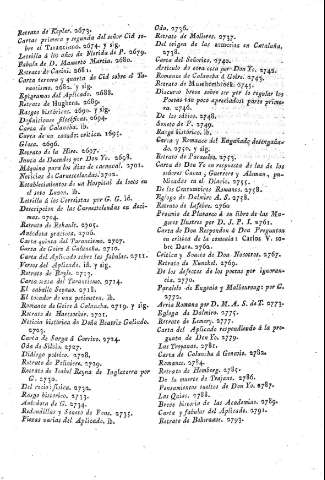 Retrato de Kepler. 2673.
Cartas primera y segunda del señor Cid so-
bre el Tarantismo. 2674. y sig.
Letrilla á los años de Nerilda de P. 2679.
Fabula de D. Mamerto Martin. 2680.
Retrato de Casini. 2681.
Carta tercera y quarta de Cid sobre el Ta-
rantismo. 2682. y sig.
Epigramas del Aplicado. 2688.
Retrato de Hughens. 2689.
Rasgos históricos. 2690. y sig.
Definiciones filosóficas. 2694.
Carta de Colancha. ib.
Carta de un casado crítico. 2695.
Glosa. 2696.
Retrato de la Hire. 2697.
Junta de Duendes por Don Yo. 2698.
Máquina para los dias de carnaval. 2701.
Noticias de Carastolendas. 2702.
Establecimientos de un Hospital de locos en
el sexo Lasso. ib.
Letrilla á los Cornistas por G. G. id.
Descripcion de las Carnestolendas en déci-
mas. 2704.
Retrato de Renault. 2705.
Anécdotas graciosas. 2706.
Carta quinta del Tarantismo. 2707.
Carta de Geirx á Colancha. 2710.
Carta del Aplicado sobre las fabulas. 2711.
Versos del Aplicado. id. y sig.
Retrato de Boyle. 2713.
Carta sexta del Tarantismo. 2714.
El caballo Sequan. 2718.
El tocador de una petimetra. ib.
Romance de Geirx á Colancha. 2719. y sig.
Retrato de Hartsoeker. 2721.
Noticia histórica de Doña Beatriz Galindo.
2723.
Carta de Sorga á Corrico. 2724.
Oda de Silvio. 2727.
Diálogo poético. 2728.
Retrato de Poliniere. 2729.
Retrato de Isabel Reyna de Inglaterra por
G. 2730.
Del razní: física. 2732.
Rasgo histórico. 2733.
Anécdota de G. 2734.
Redondillas y Soneto de Pons. 2735.
Piezas varias del Aplicado. ib.
Oda. 2736.
Retrato de Molieres. 2737.
Del origen de las acuecias en Cataluña,
2738.
Carta del Señorico. 2740.
Artículo de otra este por Don Yo. 2742.
Romance de Colancha á Gobro. 2743.
Retrato de Musschenbroek. 2745.
Discurso breve sobre ser por lo regular los
Poetas tan poco apreciados: parte prime-
ra. 2746.
De los sábios. 2748.
Soneto de P. 2749.
Rasgo histórico. ib.
Carta y Romance del Engañado desengaña-
do. 2750 y sig.
Retrato de Paracelso. 2753.
Carta de Don Yo en respuesta de las de los
señores Causa, Guerrero y Aleman, pu-
blicadas en el Diario. 2755.
De los Caramuistas Romanos. 2758.
Egloga de Dalmiro A. S. 2758.
Retrato de Lefebre. 2760
Proemio de Plutarco á su libro de las Mu-
gers Ilustres por D. J. P. I. 2761.
Carta de Don Responden á Don Pregunton
en crítica de la comedia: Carlos V. so-
bre Dura. 2762.
Crítica y Soneto de Don Nosotros. 2767.
Retrato de Kunckel. 2769.
De los defectos de los poetas por ignoran-
cia. 2770.
Paralelo de Eugenio y Malboroug: por G.
2772.
Arria Romana por D. M. A. S. de T. 2773.
Egloga de Dalmiro. 2775.
Retrato de Lemery. 2777.
Carta del Aplicado respondiendo á la pre-
gunta de Don Yo. 2779.
Las Troyanas. 2781.
Carta de Colancha á Generis. 2782.
Romance. 2784.
Retrato de Homberg. 2785.
De la muerte de Trajano. 2786.
Pensamientos sueltos de Don Yo. 2787.
Las Quias. 2788.
Breve historia de las Academias. 2789.
Carta y fabulas del Aplicado. 2791.
Retrato de Boheraave. 2793.